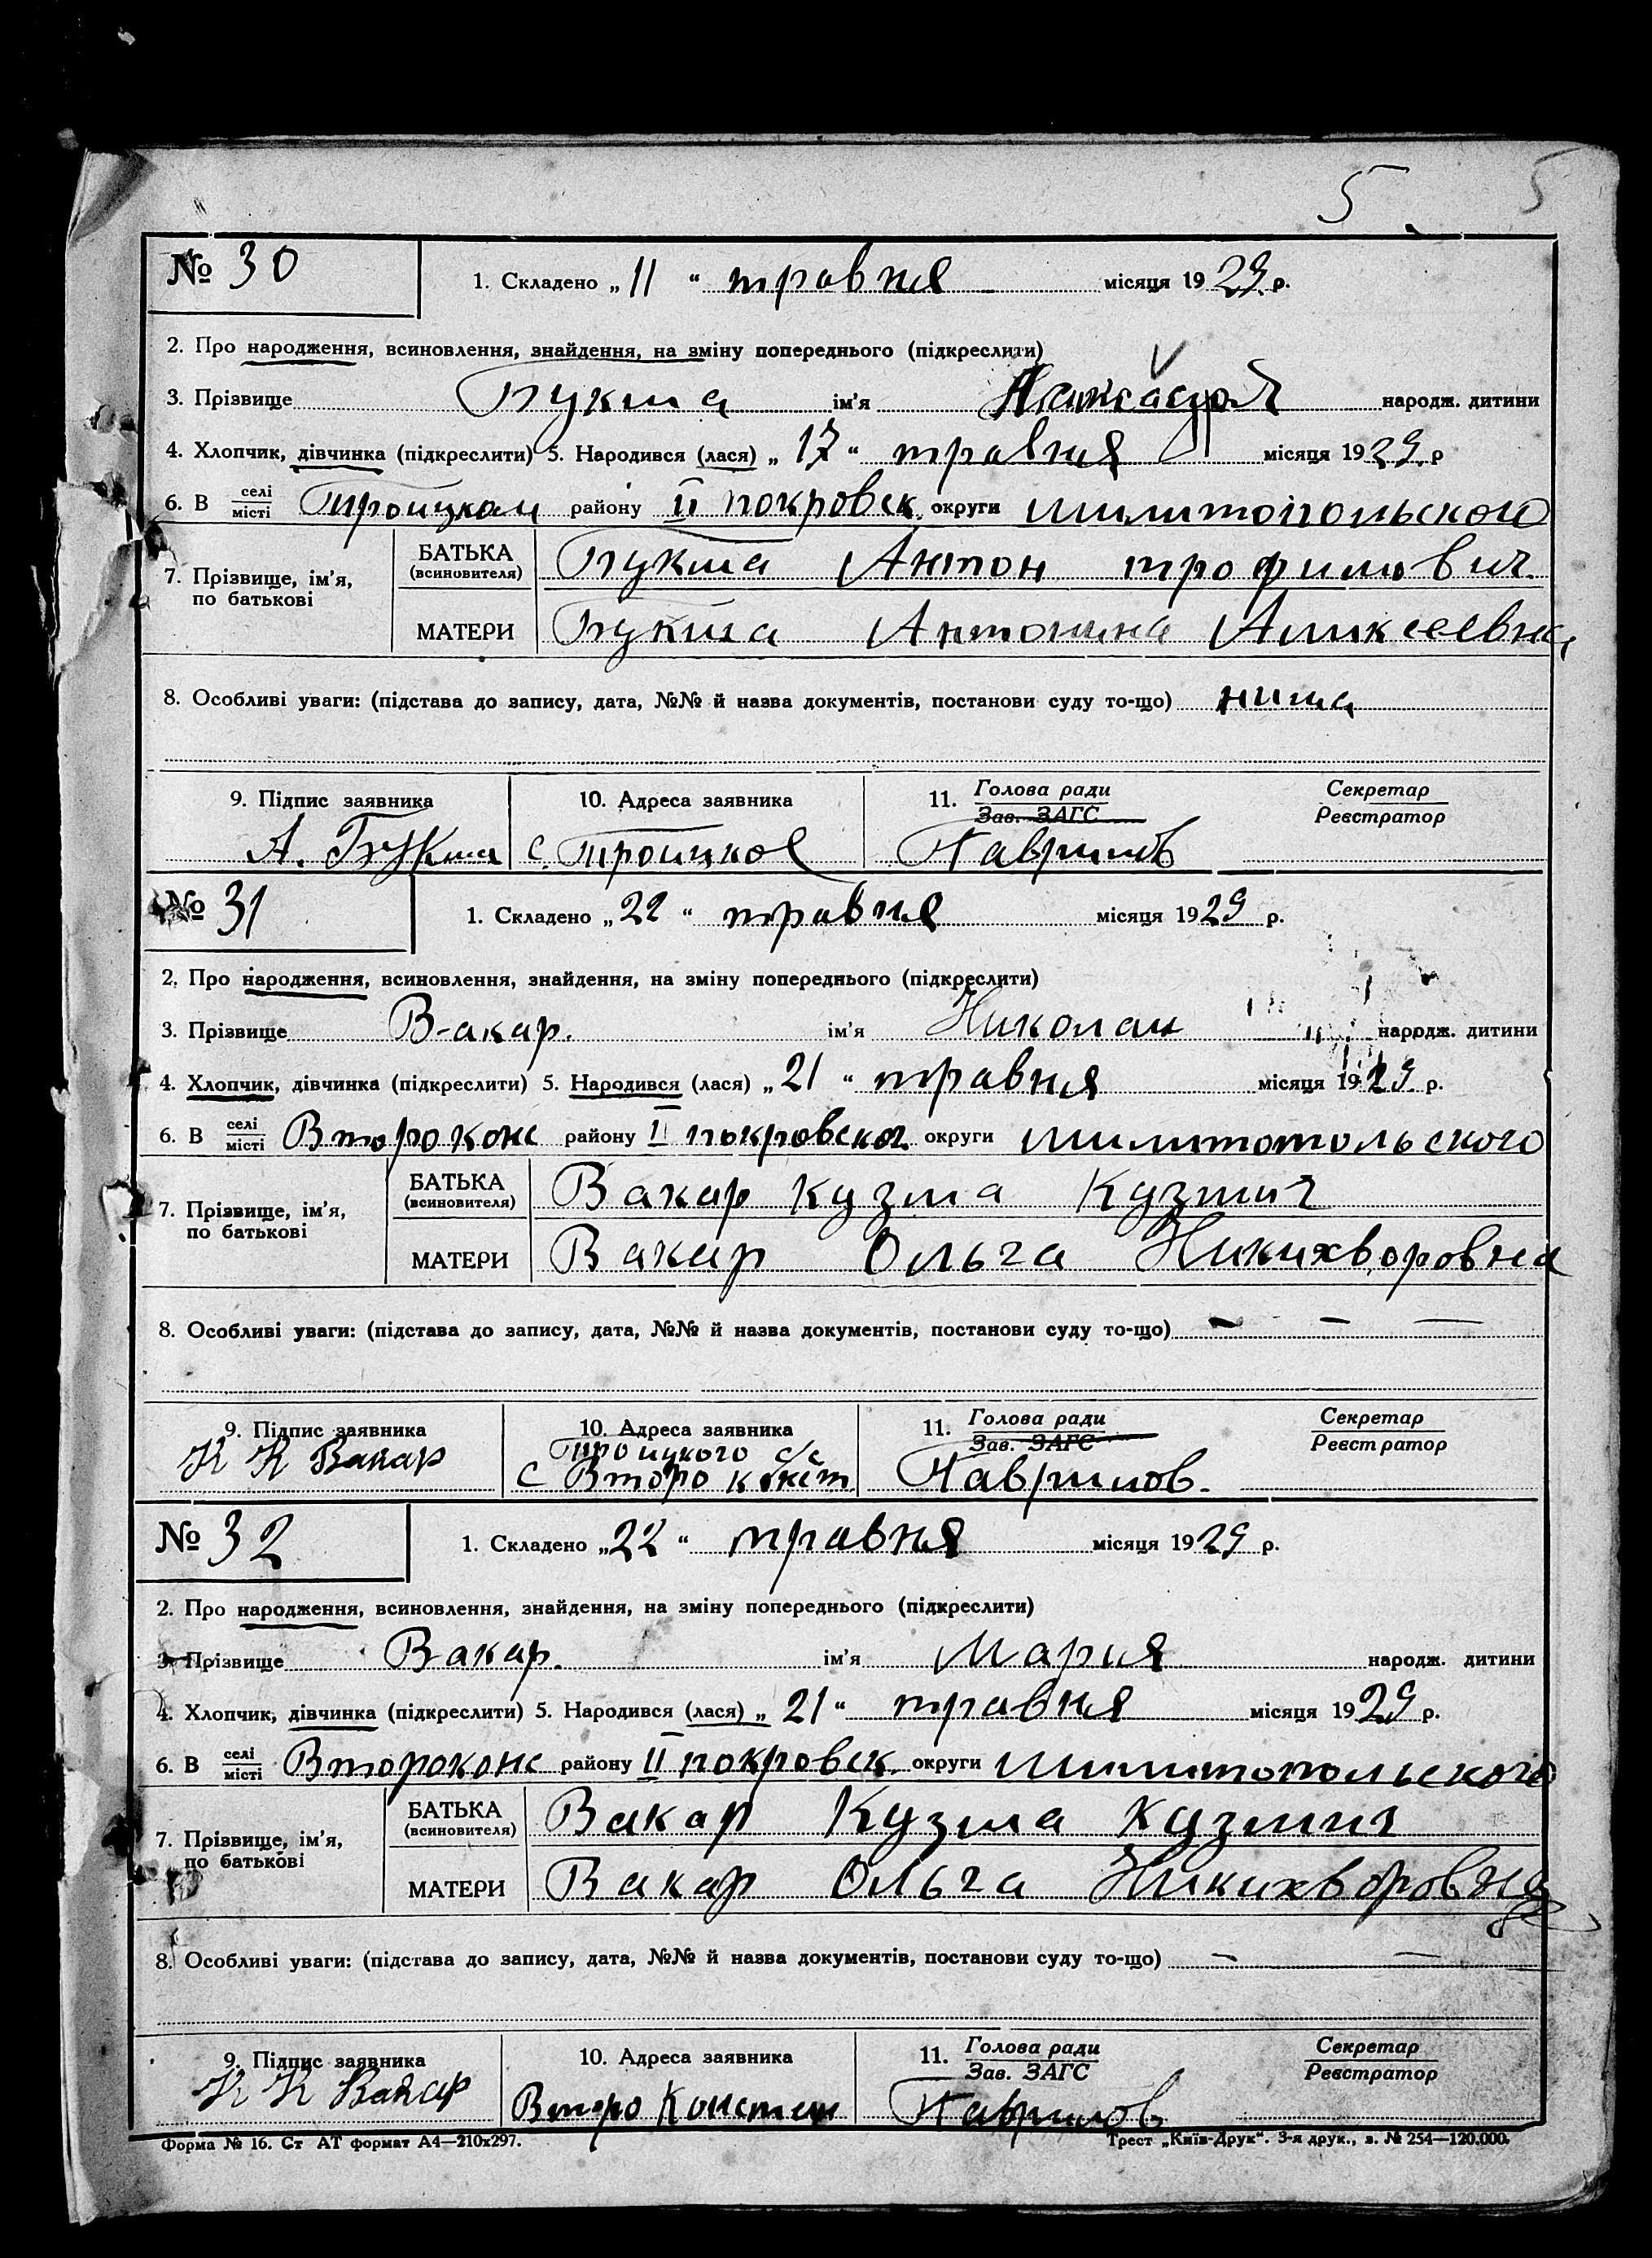 5 5
№ 30 1. Складено „ 11 “ травня місяця 19 29 р.
2. Про народження, всиновлення, знайдення, на зміну попереднього (підкреслити)
3. Прізвище Букша ім'я народж. дитини
4. Хлопчик, дівчинка (підкреслити) 5. Народився (лася) „ 17 “ травня місяця 19 29 р
6. В селі місті Троицком району II покровск. округи Милитопольского
7. Прізвище, ім'я, по батькові
БАТЬКА (всиновителя) Букша Антон трофимович
МАТЕРИ Букша Антонина Аликсеевна
8. Особливі уваги: (підстава до запису, дата, №№ й назва документів, постанови суду то-що) нима
9. Підпис заявника 10. Адреса заявника 11. Голова ради Зав. ЗАГС Секретар Реєстратор
А. Букша с. Троицкое Гаврилов
№ 31 1. Складено „ 22 “ травня місяця 19 29 р.
2. Про народження, всиновлення, знайдення, на зміну попереднього (підкреслити)
3. Прізвище Вакар. ім'я Николаи народж. дитини
4. Хлопчик, дівчинка (підкреслити) 5. Народився (лася) „ 21 “ травня місяця 19 29 р.
6. В селі місті Второконс району II покровског округи Милитопольского
7. Прізвище, ім'я, по батькові
БАТЬКА (всиновителя) Вакар Кузма Кузмич
МАТЕРИ Вакар Ольга Никихворовна
8. Особливі уваги: (підстава до запису, дата, №№ й назва документів, постанови суду то-що) — — —
9. Підпис заявника 10. Адреса заявника 11. Голова ради Зав. ЗАГС Секретар Реєстратор
К К Вакар Троицкого с/с
с Второ конст Гаврилов.
№ 32 1. Складено „ 22 “ травня місяця 19 29 р.
2. Про народження, всиновлення, знайдення, на зміну попереднього (підкреслити)
3. Прізвище Вакар. ім'я Мария народж. дитини
4. Хлопчик, дівчинка (підкреслити) 5. Народився (лася) „ 21 “ травня місяця 19 29 р.
6. В селі місті Второконс району II покровск. округи Милитопольского
7. Прізвище, ім'я, по батькові
БАТЬКА (всиновителя) Вакар Кузма Кузмич
МАТЕРИ Вакар Ольга Никихворовна
8. Особливі уваги: (підстава до запису, дата, №№ й назва документів, постанови суду то-що) — —
9. Підпис заявника 10. Адреса заявника 11. Голова ради Зав. ЗАГС Секретар Реєстратор
К К Вакар Второ Констан Гаврилов
Форма № 16. Ст АТ формат А4—210х297. Трест „Київ-Друк“. 3-я друк., з. № 254—120.000.